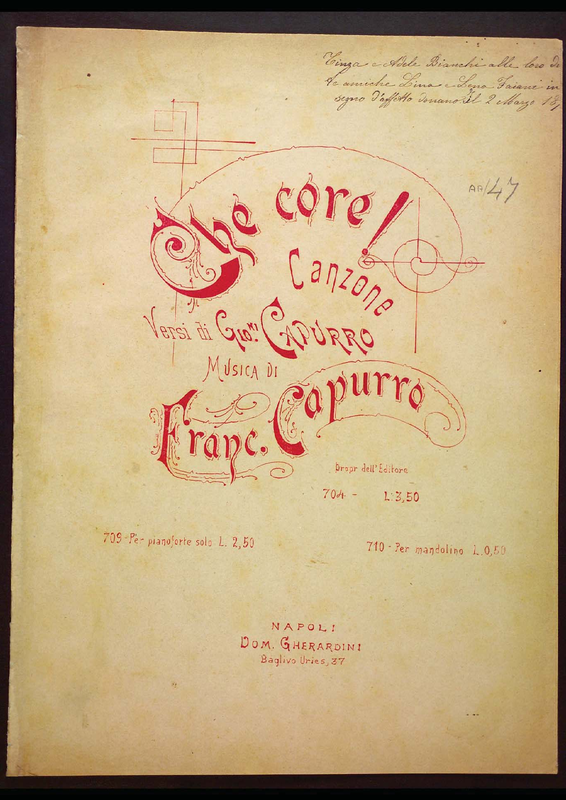 e Adele Bianchi alle loro
amiche Lina e
segno d'affetto donano il 2 Marzo 18
AA/47
Che core!
Canzone
Versi di Gio.ni Capurro
Musica di
Franc. Capurro
Propr dell'Editore
704 - L.3,50
709 - Per pianoforte solo L. 2,50
710 - Per mandolino L. 0,50
NAPOLI
Dom. Gherardini
Baglivo Uries, 37